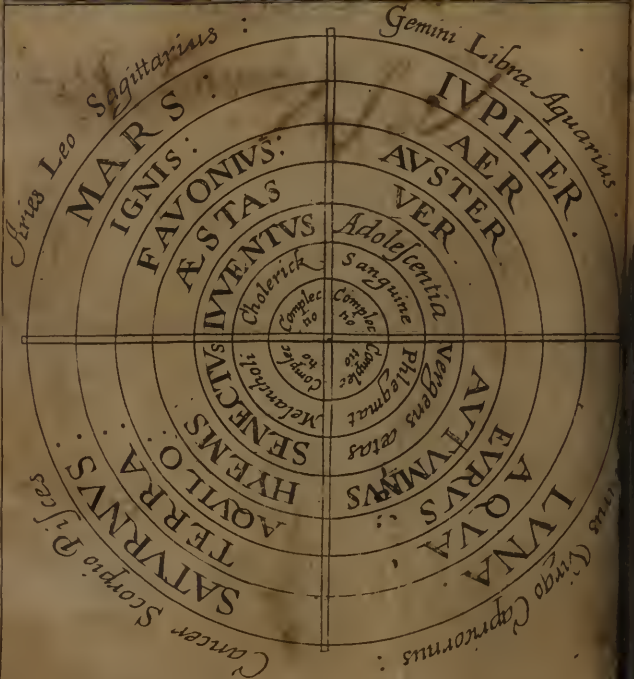 Aries Leo Sagittarius :
MARS :
IGNIS :
FAVONIVS :
ÆSTAS
IVVENTVS
Cholerick
Complec
tio
Gemini Libra Aquarius
IVPITER .
AER
AVSTER
VER
Adoleſcentia
Sanguine
Complec
tio
Virgo Capricornus :
LVNA
AQVA
EVRVS
AVTVMNVS
Vergens ætas
Phlegmat
Complec
tio
Cancer Scorpio Piſces
SATVRNVS
TERRA
AQVILO
HYEMS
SENECTVs
Melancholi
Complec
tio